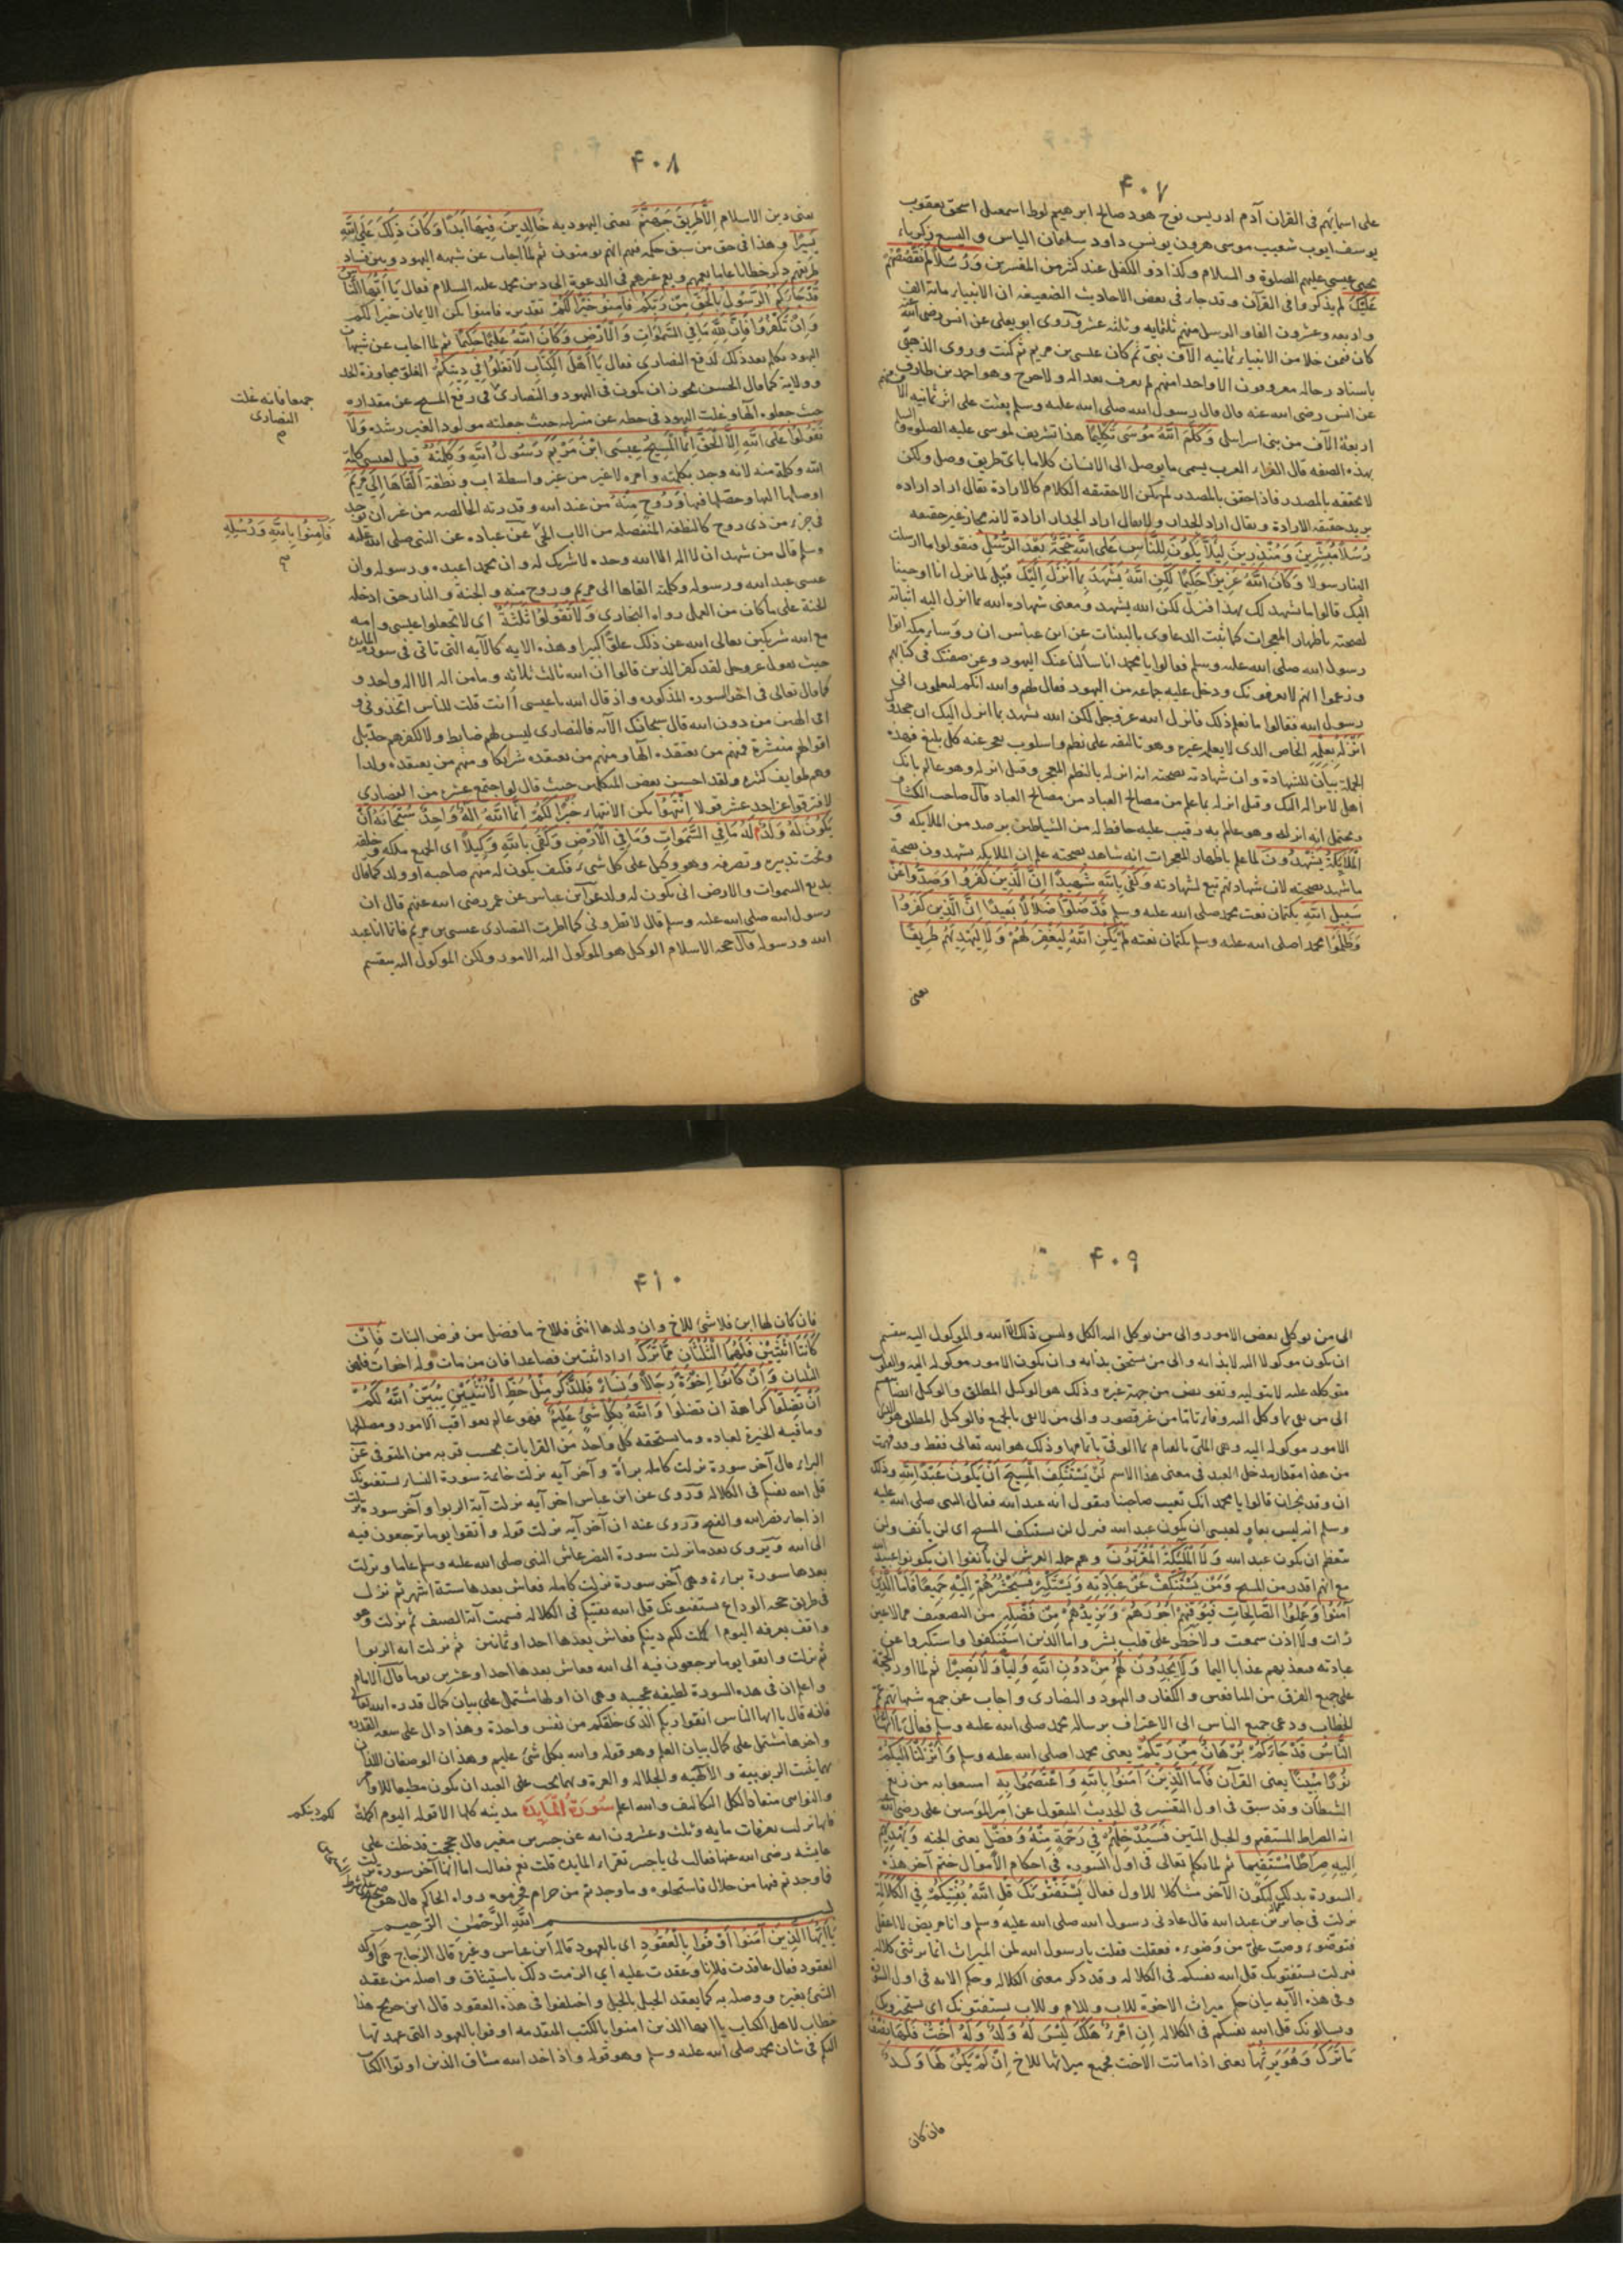 ٤٠٧
على اسمائهم فى القران آدم ادريس نوح هود صالح ابرهيم لوط اسمعيل اسحق يعقوب
يوسف ايوب شعيب موسى هرون يونس داود سليمان الياس واليسع زكرياء
يحيى عيسى عليهم الصلوة والسلام وكذا ذو الكفل عند كثير من المفسرين وَرُسُلاً لَمْ نَقْصُصْهُمْ
عَلَيْكَ لم يذكروا فى القرآن وقد جاء فى بعض الاحاديث الضعيفه ان الانبياء مائة الف
واربعه وعشرون الفا والرسل منهم ثلثمايه وثلثه عشر وروى ابو يعلى عن انس رضى الله عنه
كان فيمن خلا من الانبياء ثمانيه الآف نبى ثم كان عيسى بن مريم ثم كنت وروى الذهبى
باسناد رجاله معروفون الا واحدا منهم لم يعرف بعداله ولا جرح وهو احمد بن طارق
عن انس رضى الله عنه قال قال رسول الله صلى الله عليه وسلم بعثت على اثر ثمانيه الآف منهم
اربعة الآف من بنى اسرائيل وَكَلَّمَ اللهُ مُوسَى تَكْلِيمًا هذا تشريف لموسى عليه الصلوة والسلام
بهذه الصفه قال الفراء العرب يسمى ما يوصل الى الانسان كلاما باى طريق وصل ولكن
لا تحققه بالمصدر فاذا حقق بالمصدر لم يكن الا حقيقه الكلام كالارادة يقال اراد اراده
يريد حقيقه الارادة ويقال اراد الجدار ولا يقال اراد الجدار ارادة لانه مجاز غير حقيقه
رُسُلاً مُبَشِّرِينَ وَمُنْذِرِينَ لِئَلاَّ يَكُونَ لِلنَّاسِ عَلَى اللهِ حُجَّةٌ بَعْدَ الرُّسُلِ فيقولوا ما ارسلت
الينا رسولا وَكَانَ اللهُ عَزِيزًا حَكِيمًا لَكِنِ اللهُ يَشْهَدُ بِمَا اَنْزَلَ اِلَيْكَ قيل لما نزل انا اوحينا
اليك قالوا ما نشهد لك بهذا فنزل لكن الله يشهد ومعنى شهاده الله بما انزل اليه اثباته
لصحته باظهار المعجزات كما تثبت الدعاوى بالبينات عن ابن عباس ان رؤساء مكه اتوا
رسول الله صلى الله عليه وسلم فقالوا يا محمد انا سألنا عنك اليهود وعن صفتك فى كتابهم
وزعموا انهم لا يعرفونك ودخل عليه جماعه من اليهود فقال لهم والله انكم لتعلمون انى
رسول الله فقالوا ما نعلم ذلك فانزل الله عز وجل لكن الله يشهد بما انزل اليك ان جحدوك
اَنْزَلَهُ بِعِلْمِهِ الخاص الذى لا يعلمه غيره وهو تاليفه على نظم واسلوب يعجز عنه كل بليغ فهذه
الجملة بيان للشهادة وان شهادته بصحته انه انزله بالنظم المعجز وقيل انزله وهو عالم بانك
اهل لانزاله اليك وقيل انزله بما علم من مصالح العباد قال صاحب الكشاف
ويحتمل انه انزله وهو عالم به رقيب عليه حافظ له من الشياطين برصد من الملايكه وَ
الْمَلاَئِكَةُ يَشْهَدُونَ لما علم باظهار المعجزات انه شاهد بصحته علم ان الملايكه يشهدون بصحة
ما شهد بصحته لان شهادتهم تبع لشهادته وَكَفَى بِاللهِ شَهِيدًا اِنَّ الَّذِينَ كَفَرُوا وَصَدُّوا عَنْ
سَبِيلِ اللهِ بكتمان نعت محمد صلى الله عليه وسلم قَدْ ضَلُّوا ضَلاَلاً بَعِيدًا اِنَّ الَّذِينَ كَفَرُوا
وَظَلَمُوا محمدا صلى الله عليه وسلم بكتمان نعته لَمْ يَكُنِ اللهُ لِيَغْفِرَ لَهُمْ وَلاَ لِيَهْدِيَهُمْ طَرِيقًا
يعنى
٤٠٨
يعنى دين الاسلام اِلاَّ طَرِيقَ جَهَنَّمَ يعنى اليهوديه خَالِدِينَ فِيهَا اَبَدًا وَكَانَ ذَلِكَ عَلَى اللهِ
يَسِيرًا وهذا فى حق من سبق حكمه فيهم انهم لا يومنون ثم لما اجاب عن شبهه اليهود وبين فساد
طريقتهم ذكر خطابا عاما يعمهم ويعم غيرهم فى الدعوة الى دين محمد عليه السلام فقال يَا اَيُّهَا النَّاسُ
قَدْ جَاءَكُمُ الرَّسُولُ بِالْحَقِّ مِنْ رَبِّكُمْ فَآمِنُوا خَيْرًا لَكُمْ تقديره فامنوا يكن الايمان خيرا لكم
وَاِنْ تَكْفُرُوا فَاِنَّ لِلَّهِ مَا فِي السَّمَوَاتِ وَالاَرْضِ وَكَانَ اللهُ عَلِيمًا حَكِيمًا ثم لما اجاب عن شبهات
اليهود تكلم بعد ذلك لدفع النصارى فقال يَا اَهْلَ الْكِتَابِ لاَ تَغْلُوا فِي دِينِكُمْ الغلو مجاوزة الحد
وولاية كما قال الحسن يجوز ان يكون فى اليهود والنصارى فى رفع المسيح عن مقداره
حيث جعلوه آلها وغلت اليهود فى حطه عن منزلته حيث جعلته مولودا لغير رشده وَلاَ
تَقُولُوا عَلَى اللهِ اِلاَّ الْحَقَّ اِنَّمَا الْمَسِيحُ عِيسَى ابْنُ مَرْيَمَ رَسُولُ اللهِ وَكَلِمَتُهُ قيل لعيسى كلمة
الله وكلمة منه لانه وجد بكلمته وامره لا غير من غير واسطة اب ونطفة اَلْقَاهَا اِلَى مَرْيَمَ
اوصلها اليها وحصلها فيها وَرُوحٌ مِنْهُ من عند الله وقدرته الخالصه من غير ان توجد
فى جزء من ذى روح كالنطفه المنفصله من الاب الحى عن عباده عن النبى صلى الله عليه
وسلم قال من شهد ان لا اله الا الله وحده لا شريك له وان محمدا عبده ورسوله وان
عيسى عبد الله ورسوله وكلمته القاها الى مريم وروح منه والجنة والنار حق ادخله
الجنة على ما كان من العمل رواه البخارى وَلاَ تَقُولُوا ثَلَثَةٌ اى لا تجعلوا عيسى وامه
مع الله شريكين تعالى الله عن ذلك علوا كبيرا وهذه الايه كالآيه التى تاتى فى سورة المايده
حيث يقول عز وجل لقد كفر الذين قالوا ان الله ثالث ثلاثه وما من اله الا اله واحد و
كما قال تعالى فى اخر السوره المذكوره واذ قال الله يا عيسى أانت قلت للناس اتخذونى و
امى الهين من دون الله قال سبحانك الآيه فالنصارى ليس لهم ضابط ولا لكفرهم حد بل
اقوالهم منتشرة فمنهم من يعتقده آلها ومنهم من يعتقده شريكا ومنهم من يعتقده ولدا
وهم طوايف كثيره ولقد احسن بعض المتكلمين حيث قال لو اجتمع عشره من النصارى
لافترقوا عن احد عشر قولا اِنْتَهُوا يكن الانتهاء خَيْرًا لَكُمْ اِنَّمَا اللهُ اِلَهٌ وَاحِدٌ سُبْحَانَهُ اَنْ
يَكُونَ لَهُ وَلَدٌ لَهُ مَا فِي السَّمَوَاتِ وَمَا فِي الاَرْضِ وَكَفَى بِاللهِ وَكِيلاً اى الجميع ملكه وخلقه
وتحت تدبيره وتصرفه وهو وكيل على كل شىء فكيف يكون له منهم صاحبه او ولد كما قال
بديع السموات والارض انى يكون له ولد عن ابن عباس عن عمر رضى الله عنهم قال ان
رسول الله صلى الله عليه وسلم قال لا تطرونى كما اطرت النصارى عيسى بن مريم فانما انا عبد
الله ورسوله قال حجه الاسلام الوكيل هو الموكول اليه الامور ولكن الموكول اليه ينقسم
جميعا فانه غلت
النصارى
صح
فَآمِنُوا بِاللهِ وَرُسُلِهِ
صح
٤٠٩
الى من يوكل بعض الامور والى من يوكل اليه الكل وليس ذلك الا الله والموكول اليه ينقسم
ان يكون موكولا اليه لا بذاته والى من يستحق بذاته وان يكون الامور موكوله اليه والقلوب
متوكله عليه لا بتوليه وتفويض من جهة غيره وذلك هو الوكيل المطلق والوكيل ايضا ينقسم
الى من يفى بما وكل اليه وفاء تاما من غير قصور والى من لا يفى بالجميع فالوكيل المطلق هو الذى
الامور موكوله اليه وهى الملى بالقيام بها الوفى باتمامها وذلك هو الله تعالى فقط وقد فهمت
من هذا مقدار مدخل العبد فى معنى هذا الاسم لَنْ يَسْتَنْكِفَ الْمَسِيحُ اَنْ يَكُونَ عَبْدًا لِلَّهِ وذلك
ان وفد نجران قالوا يا محمد انك تعيب صاحبنا فتقول انه عبد الله فقال النبى صلى الله عليه
وسلم انه ليس بعار لعيسى ان يكون عبد الله فنزل لن يستنكف المسيح اى لن يأنف ولن
يتعظم ان يكون عبد الله وَلاَ الْمَلَئِكَةُ الْمُقَرَّبُونَ وهم حمله العرش لن يأنفوا ان يكونوا عبيد الله
مع انهم اقدر من المسيح وَمَنْ يَسْتَنْكِفْ عَنْ عِبَادَتِهِ وَيَسْتَكْبِرْ فَسَيَحْشُرُهُمْ اِلَيْهِ جَمِيعًا فَاَمَّا الَّذِينَ
آمَنُوا وَعَمِلُوا الصَّالِحَاتِ فَيُوَفِّيهِمْ اُجُورَهُمْ وَيَزِيدُهُمْ مِنْ فَضْلِهِ من التضعيف مما لا عين
رأت ولا اذن سمعت ولا خطر على قلب بشر واما الذين استنكفوا واستكبروا عن
عبادته فيعذبهم عذابا اليما وَلاَ يَجِدُونَ لَهُمْ مِنْ دُونِ اللهِ وَلِيًّا وَلاَ نَصِيرًا ثم لما اورد الحجة
على جميع الفرق من المنافقين والكفار واليهود والنصارى واجاب عن جميع شبهاتهم عمم
الخطاب ودعى جميع الناس الى الاعتراف برساله محمد صلى الله عليه وسلم فقال يَا اَيُّهَا
النَّاسُ قَدْ جَاءَكُمْ بُرْهَانٌ مِنْ رَبِّكُمْ يعنى محمدا صلى الله عليه وسلم وَاَنْزَلْنَا اِلَيْكُمْ
نُورًا مُبِينًا يعنى القرآن فَاَمَّا الَّذِينَ آمَنُوا بِاللهِ وَاعْتَصَمُوا بِهِ امتنعوا به من زيغ
الشيطان وقد سبق فى اول التفسير فى الحديث المنقول عن امير المومنين على رضى الله عنه
انه الصراط المستقيم والحبل المتين فَسَيُدْخِلُهُمْ فِي رَحْمَةٍ مِنْهُ وَفَضْلٍ يعنى الجنه وَيَهْدِيهِمْ
اِلَيْهِ صِرَاطًا مُسْتَقِيمًا ثم لما تكلم تعالى فى اول السوره فى احكام الأموال ختم آخر هذه
السورة بذلك ليكون الآخر مشاكلا للاول فقال يَسْتَفْتُونَكَ قُلِ اللهُ يُفْتِيكُمْ فِي الْكَلاَلَةِ
نزلت فى جابر بن عبد الله قال عادنى رسول الله صلى الله عليه وسلم وانا مريض لا اعقل
فتوضوء وصب على من وضوءه فعقلت فقلت يا رسول الله لمن الميراث انما يرثنى كلاله
فنزلت يستفتونك قل الله يفتيكم فى الكلاله وقد ذكر معنى الكلاله وحكم الايه فى اول السورة
وفى هذه الآيه بيان حكم ميراث الاخوة للاب وللام وللاب يستفتونك اى يستخبرونك
ويسالونك قل الله يفتيكم فى الكلاله اِنِ امْرُؤٌ هَلَكَ لَيْسَ لَهُ وَلَدٌ وَلَهُ اُخْتٌ فَلَهَا نِصْفُ
مَا تَرَكَ وَهُوَ يَرِثُهَا يعنى اذا ماتت الاخت فجميع ميراثها للاخ اِنْ لَمْ يَكُنْ لَهَا وَلَدٌ
فان كان
٤١٠
فان كان لها ابن فلا شئ للاخ وان ولدها انثى فللاخ ما فضل من فرض البنات فَاِنْ
كَانَتَا اثْنَتَيْنِ فَلَهُمَا الثُّلُثَانِ مِمَّا تَرَكَ اراد اثنتين فصاعدا فان من مات وله اخوات فلهن
الثلثان وَاِنْ كَانُوا اِخْوَةً رِجَالاً وَنِسَاءً فَلِلذَّكَرِ مِثْلُ حَظِّ الاُنْثَيَيْنِ يُبَيِّنُ اللهُ لَكُمْ
اَنْ تَضِلُّوا كراهة ان تضلوا وَاللهُ بِكُلِّ شَىْءٍ عَلِيمٌ فهو عالم بعواقب الامور ومصالحها
وما فيه الخيرة لعباده وما يستحقه كل واحد من القرابات بحسب قربه من المتوفى عن
البراء قال آخر سورة نزلت كامله براة وآخر آيه نزلت خاتمة سورة النساء يستفتونك
قل الله يفتيكم فى الكلاله وروى عن ابن عباس اخر آيه نزلت آية الربوا وآخر سورة نزلت
اذا جاء نصر الله والفتح وروى عنه ان آخر آيه نزلت قوله واتقوا يوما ترجعون فيه
الى الله ويروى بعد ما نزلت سورة النصر عاش النبى صلى الله عليه وسلم عاما ونزلت
بعدها سورة براءة وهى آخر سورة نزلت كامله فعاش بعدها ستة اشهر ثم نزل
فى طريق حجه الوداع يستفتونك قل الله يفتيكم فى الكلاله فسميت آية الصيف ثم نزلت وهو
واقف بعرفه اليوم اكملت لكم دينكم فعاش بعدها احدا وثمانين ثم نزلت ايه الربوا
ثم نزلت واتقوا يوما ترجعون فيه الى الله فعاش بعدها احدا وعشرين يوما قال الامام
واعلم ان فى هذه السورة لطيفه عجيبه وهى ان اولها مشتمل على بيان كمال قدره الله تعالى
فانه قال يا ايها الناس اتقوا ربكم الذى خلقكم من نفس واحدة وهذا دال على سعه القدره
واخرها مشتمل على كمال بيان العلم وهو قوله والله بكل شئ عليم وهذان الوصفان اللذان
بهما يثبت الربوبيه والآلهيه والجلاله والعزة وبهما يجب على العبد ان يكون مطيعا للاوامر
والنواهى منقادا لكل التكاليف والله اعلم سُورَةُ الْمَايِدَه مدينه كلها الا قوله اليوم اكملت
فانها نزلت بعرفات مايه وثلث وعشرون ايه عن جبير بن نفير قال حججت فدخلت على
عايشه رضى الله عنها فقالت لى يا جبير تقراء المايده قلت نعم فقالت اما انها آخر سورة نزلت
فما وجدتم فيها من حلال فاستحلوه وما وجدتم من حرام فحرموه رواه الحاكم وقال هو صحيح
بسم اللهِ الرَّحْمٰنِ الرَّحِيمِ
يَا اَيُّهَا الَّذِينَ آمَنُوا اَوْفُوا بِالْعُقُودِ اى بالعهود قاله ابن عباس وغيره قال الزجاج هى اوكد
العقود فقال عاقدت فلانا وعقدت عليه اى الزمت ذلك باستيثاق واصله من عقد
الشئ بغيره ووصله به كما يعقد الحبل بالحبل واختلفوا فى هذه العقود قال ابن جريج هذا
خطاب لاهل الكتاب يا ايها الذين امنوا بالكتب المتقدمه اوفوا بالعهود التى عهدتها
اليكم فى شان محمد صلى الله عليه وسلم وهو قوله واذ اخذ الله ميثاق الذين اوتوا الكتاب
لكم دينكم